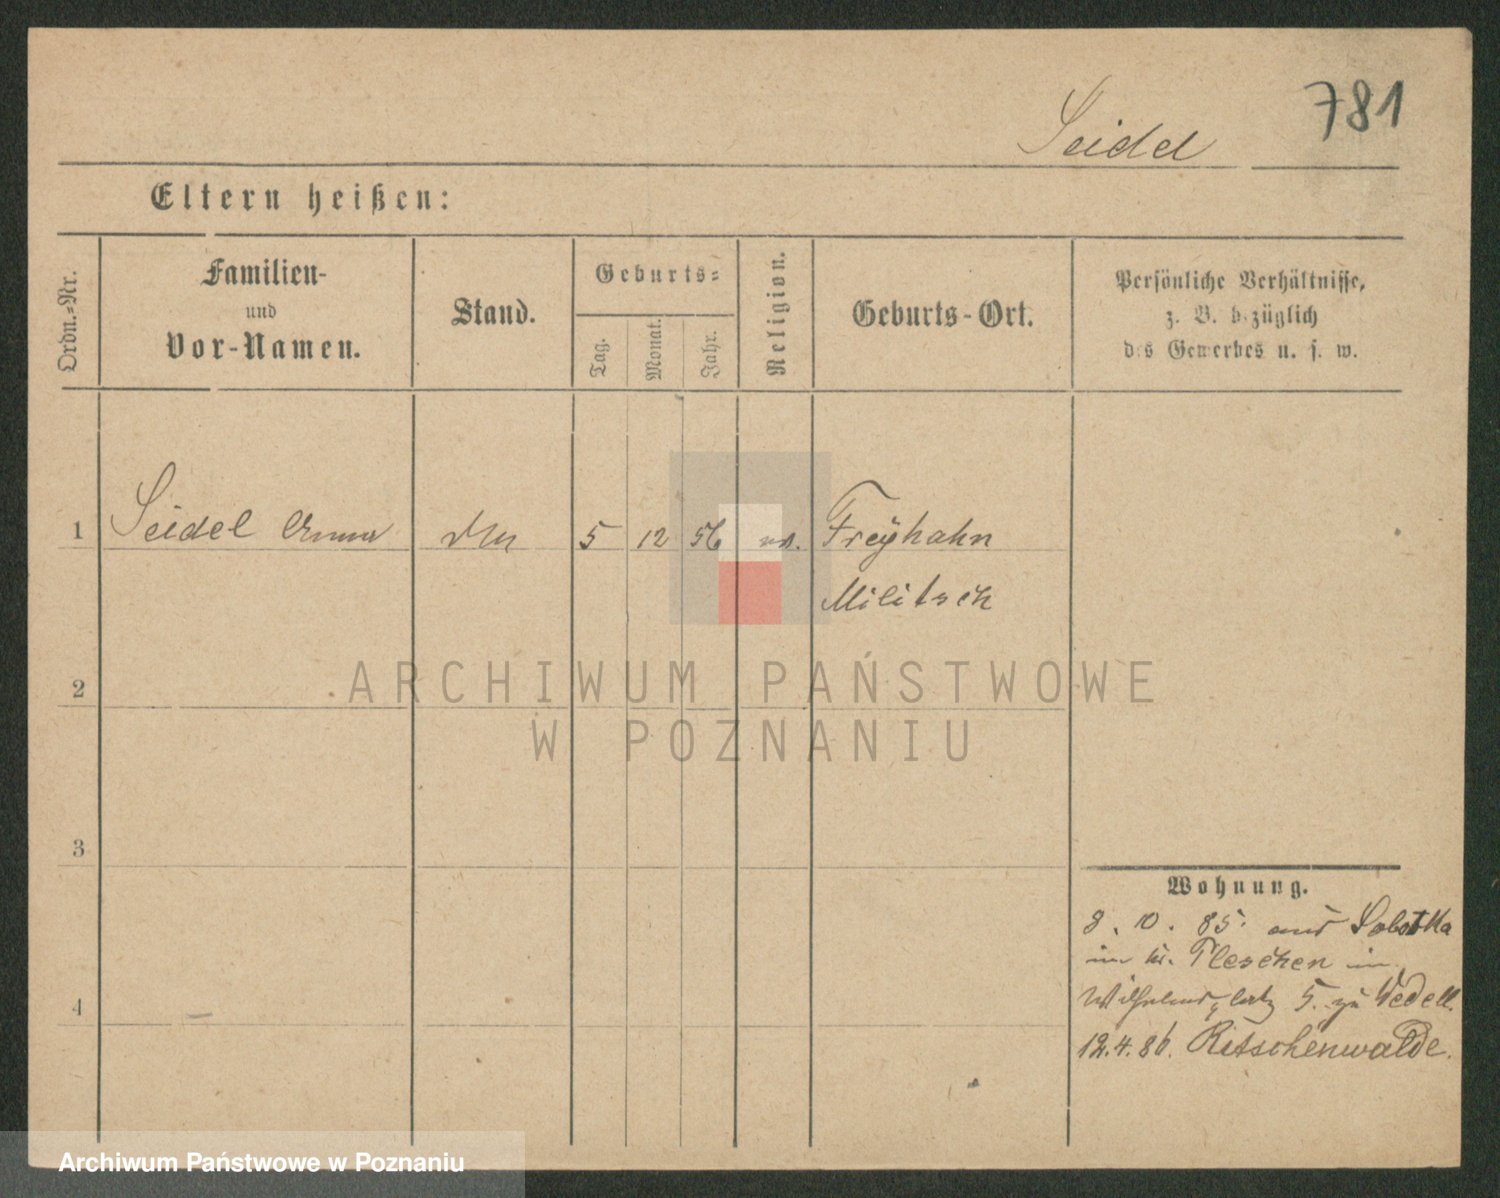 781
Seidel
Eltern heißen:
Ordn.-Nr.
Familien-
und
Vor-Namen.
Stand.
Geburts-
Tag.
Monat.
Jahr.
Religion.
Geburts-Ort.
Persönliche Verhältnisse,
z. B. bezüglich
des Gewerbes u. s. w.
1 Seidel Anna 5 12 56 Freyhahn
Militsch
ARCHIWUM PAŃSTWOWE
W POZNANIU
2
3
4
Wohnung.
8. 10. 85. aus Sobotka
im Kr. Pleschen in
Wilhelmsplatz 5. zu Wedell.
12.4.86. Ritschenwalde.
Archiwum Państwowe w Poznaniu